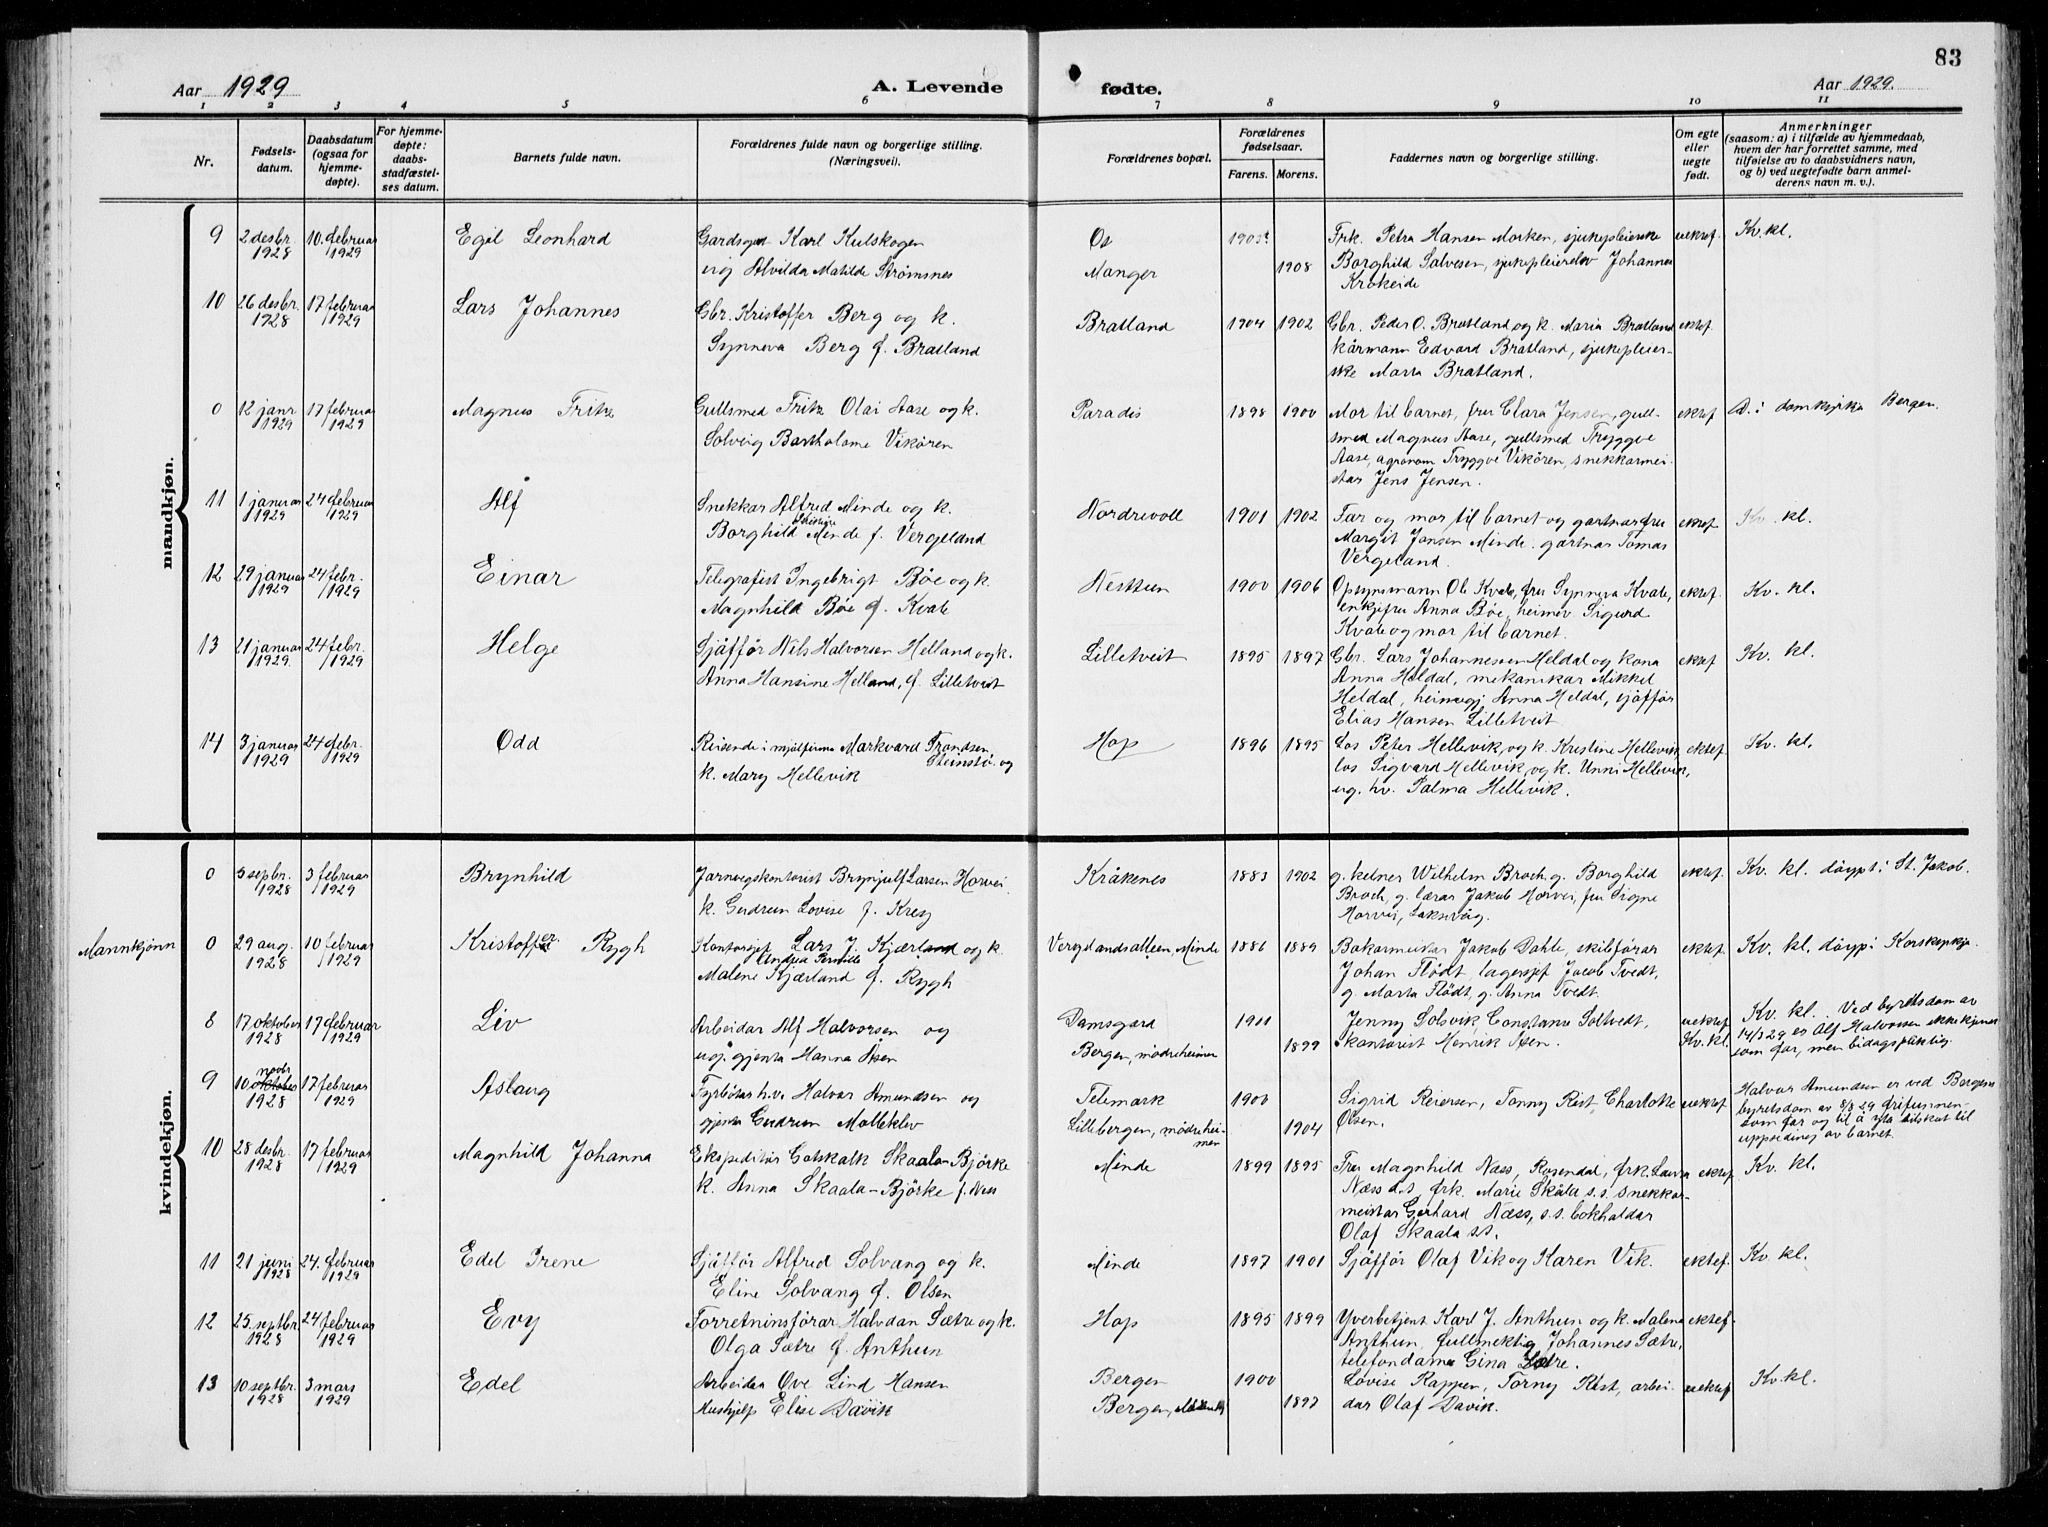 83
Aar 1929
A. Levende fødte.
Aar 1929.
1 2 3 4 5 6 7 8 9 10 11
Nr.
Fødsels-
datum.
Daabsdatum
(ogsaa for
hjemme-
døpte).
For hjemme-
døpte:
daabs-
stadfæstel-
ses datum.
Barnets fulde navn.
Forældrenes fulde navn og borgerlige stilling.
(Næringsvei).
Forældrenes bopæl.
Forældrenes
fødselsaar.
Farens. Morens.
Faddernes navn og borgerlige stilling.
Om egte
eller
uegte
født.
Anmerkninger
(saasom: a) i tilfælde av hjemmedaab,
hvem der har forrettet samme, med
tilføielse av to daabsvidners navn,
og b) ved uegtefødte barn anmel-
derens navn m. v.).
mandkjøn.
9 2 desbr. 1928 10. februar 1929 Egil Leonhard
Karl Kulskogen
ugj. Alvilda Matilde Strømsnes
Os
Manger
1908
Frk. Petra Hansen Morken, sjukepleierske
Borghild Salvesen, sjukepleierelev Johannes
Krokeide
uektef. Kv. kl.
10 26 desbr. 1928 17 februar 1929 Lars Johannes
Gbr. Kristoffer Berg og k.
Synneva Berg f. Bratland
Bratland 1904 1902
Gbr. Peder O. Bratland og k. Maria Bratland
kårmann Edvard Bratland, sjukepleier-
ske Marta Bratland.
ektef.
0 12 janr 1929 17 februar 1929 Magnus Fritz
Gullsmed Fritz Olai Aase og k.
Solveig Bartholame Vikören
Paradis 1898 1900
Mor til barnet, fru Clara Jensen, gull-
smed Magnus Aase, gullsmed Tryggve
Aase, agronom Tryggve Vikören, snekkarmei-
star Jens Jensen.
ektef. D. i domkyrkja Bergen.
11 1 januar 1929 24 februar 1929 Alf
Snekkar Alfred Minde og k.
Borghild Minde f. Vergeland
Nordrevoll 1901 1902
Far og mor til barnet og gartnarfru
Margit Jansen Minde. gartnar Tomas
Vergeland.
ektef. Kv. kl.
12 29 januar 1929 24 febr. 1929 Einar
Telegrafist Ingebrigt Böe og k.
Magnhild Böe f. Kvale
Nesttun 1900 1906
Opsynsmann Ol. Kvale, fru Synneva Kvale,
enkjefru Anna Böe, heimev. Sigurd
Kvale og mor til barnet.
ektef. Kv. kl.
13 21 januar 1929. 24 febr. 1929 Helge
Sjåffør Nils Halvorsen Helland og k.
Anna Hansine Helland, f. Lilletveit
Lilletveit 1895 1897
Gbr. Lars Johannessen Heldal og kona
Anna Heldal, mekanikar Mikkel
Heldal, heimegj. Anna Heldal, sjåffør
Elias Hansen Lilletveit
ektef Kv. kl.
14 3 januar 1929 24 febr. 1929 Odd
Reisende i mjølfirma Markvard Frandsen
Steinstø. og
k. Mary Hellevik
Hop 1896 1895
Los Peter Hellevik, og k. Kristine Hellevik
los Sigvard Hellevik, og k. Unni Hellevik,
ug. hv. Palma Hellevik.
ektef. Kv. kl.
kvindekjøn.
0 5 sepbr. 1928 3 februar 1929 Brynhild
Jarnvegskontorist Brynjulf Larsen Horvei
k. Gudrun Lovise f. Krey
Kråkenes 1883 1902
g. kelner Wilhelm Broch, g. Borghild
Broch, g. lærar Jakob Horvei, fru Signe
Horvei, Laksevåg.
ektef. Kv. kl. døypt i St. Jakob.
Mannkjønn 0 29 aug. 1928 10 februar 1929 Kristoffer Rygh
Kontorsjef Lars J. Kjærland og k.
Andrea Pernille
Malene Kjærland f. Rygh
Vergelandsalleen, Minde 1886 1889
Bakarmeistar Jakob Dahle, skibsførar
Johan Flødt, lagersjef Jacob Tvedt,
g. Marta Flødt, g. Anna Tvedt.
ektef. Kv. kl. døyp i Korskyrkja.
8 17 oktober 1928 17 februar 1929 Liv
Arbeidar Alf Halvorsen og
ugj. gjenta Hanna Åsen
Damsgård
Bergen, mødreheimen
1901
1899
Jenny Solsvik, Constanse Soltvedt,
kontorist Henrik Åsen.
uektef. Kv. kl.
Kv. kl. Ved byretsdom av
14/3 29 er Alf Halvorsen ikke kjennes
som far, men bidragspliktig.
9 10 oktober novbr 1928 17 februar 1929 Aslaug
Fyrbøtar h.v. Halvar Amundsen og
gjenta Gudrun Molleklev
Telemark
Lillebergen, mødrehei-
men
1900
1904
Sigrid Reiersen, Tonny Rist, Charlotte
Olsen.
uektef.
Halvar Amundsen er ved Bergens
byretsdom av 8/3 29 drifunnen
som far og til å yta tilskot til
uppseding av barnet.
10 28 desbr. 1928 17 februar 1929 Magnhild Johanna
Ekspeditør Gotskalk Skaala-Björke
k. Anna Skaala-Björke f. Næss
Minde 1899 1895
Fru Magnhild Næss, Rosendal, frk. Laura
Næss s.s. frk. Marie Skåla s.s. snekkar-
meistar Gerhard Næss, s.s. bokhaldar
Olaf Skaala s.s.
ektef Kv. kl.
11 21 juni 1928 24. februar 1929 Edel Irene
Sjåffør Alfred Solvang og k.
Eline Solvang f. Olsen
Minde 1897 1901
Sjåffør Olaf Vik og Karen Vik.
ektef. Kv. kl.
12 25 septbr. 1928 24 februar 1929 Evy
Forretninsførar Halvdan Sætre og k.
Olga Sætre f. Anthun
Hop 1895 1899
Yverbetjent Karl J. Anthun og k. Malena
Anthun, fullmektig Johannes Sætre,
telefondame Gina Sætre.
ektef.
13 10 septbr. 1928 3 mars 1929 Edel
Arbeidar Ove Lind Hansen
Hushjelp Elise Davik
Bergen
Bergen,
1900
1897
Lovise Kappen, Torny Rist, arbei-
dar Olaf Davik.
uektef. Kv. kl.